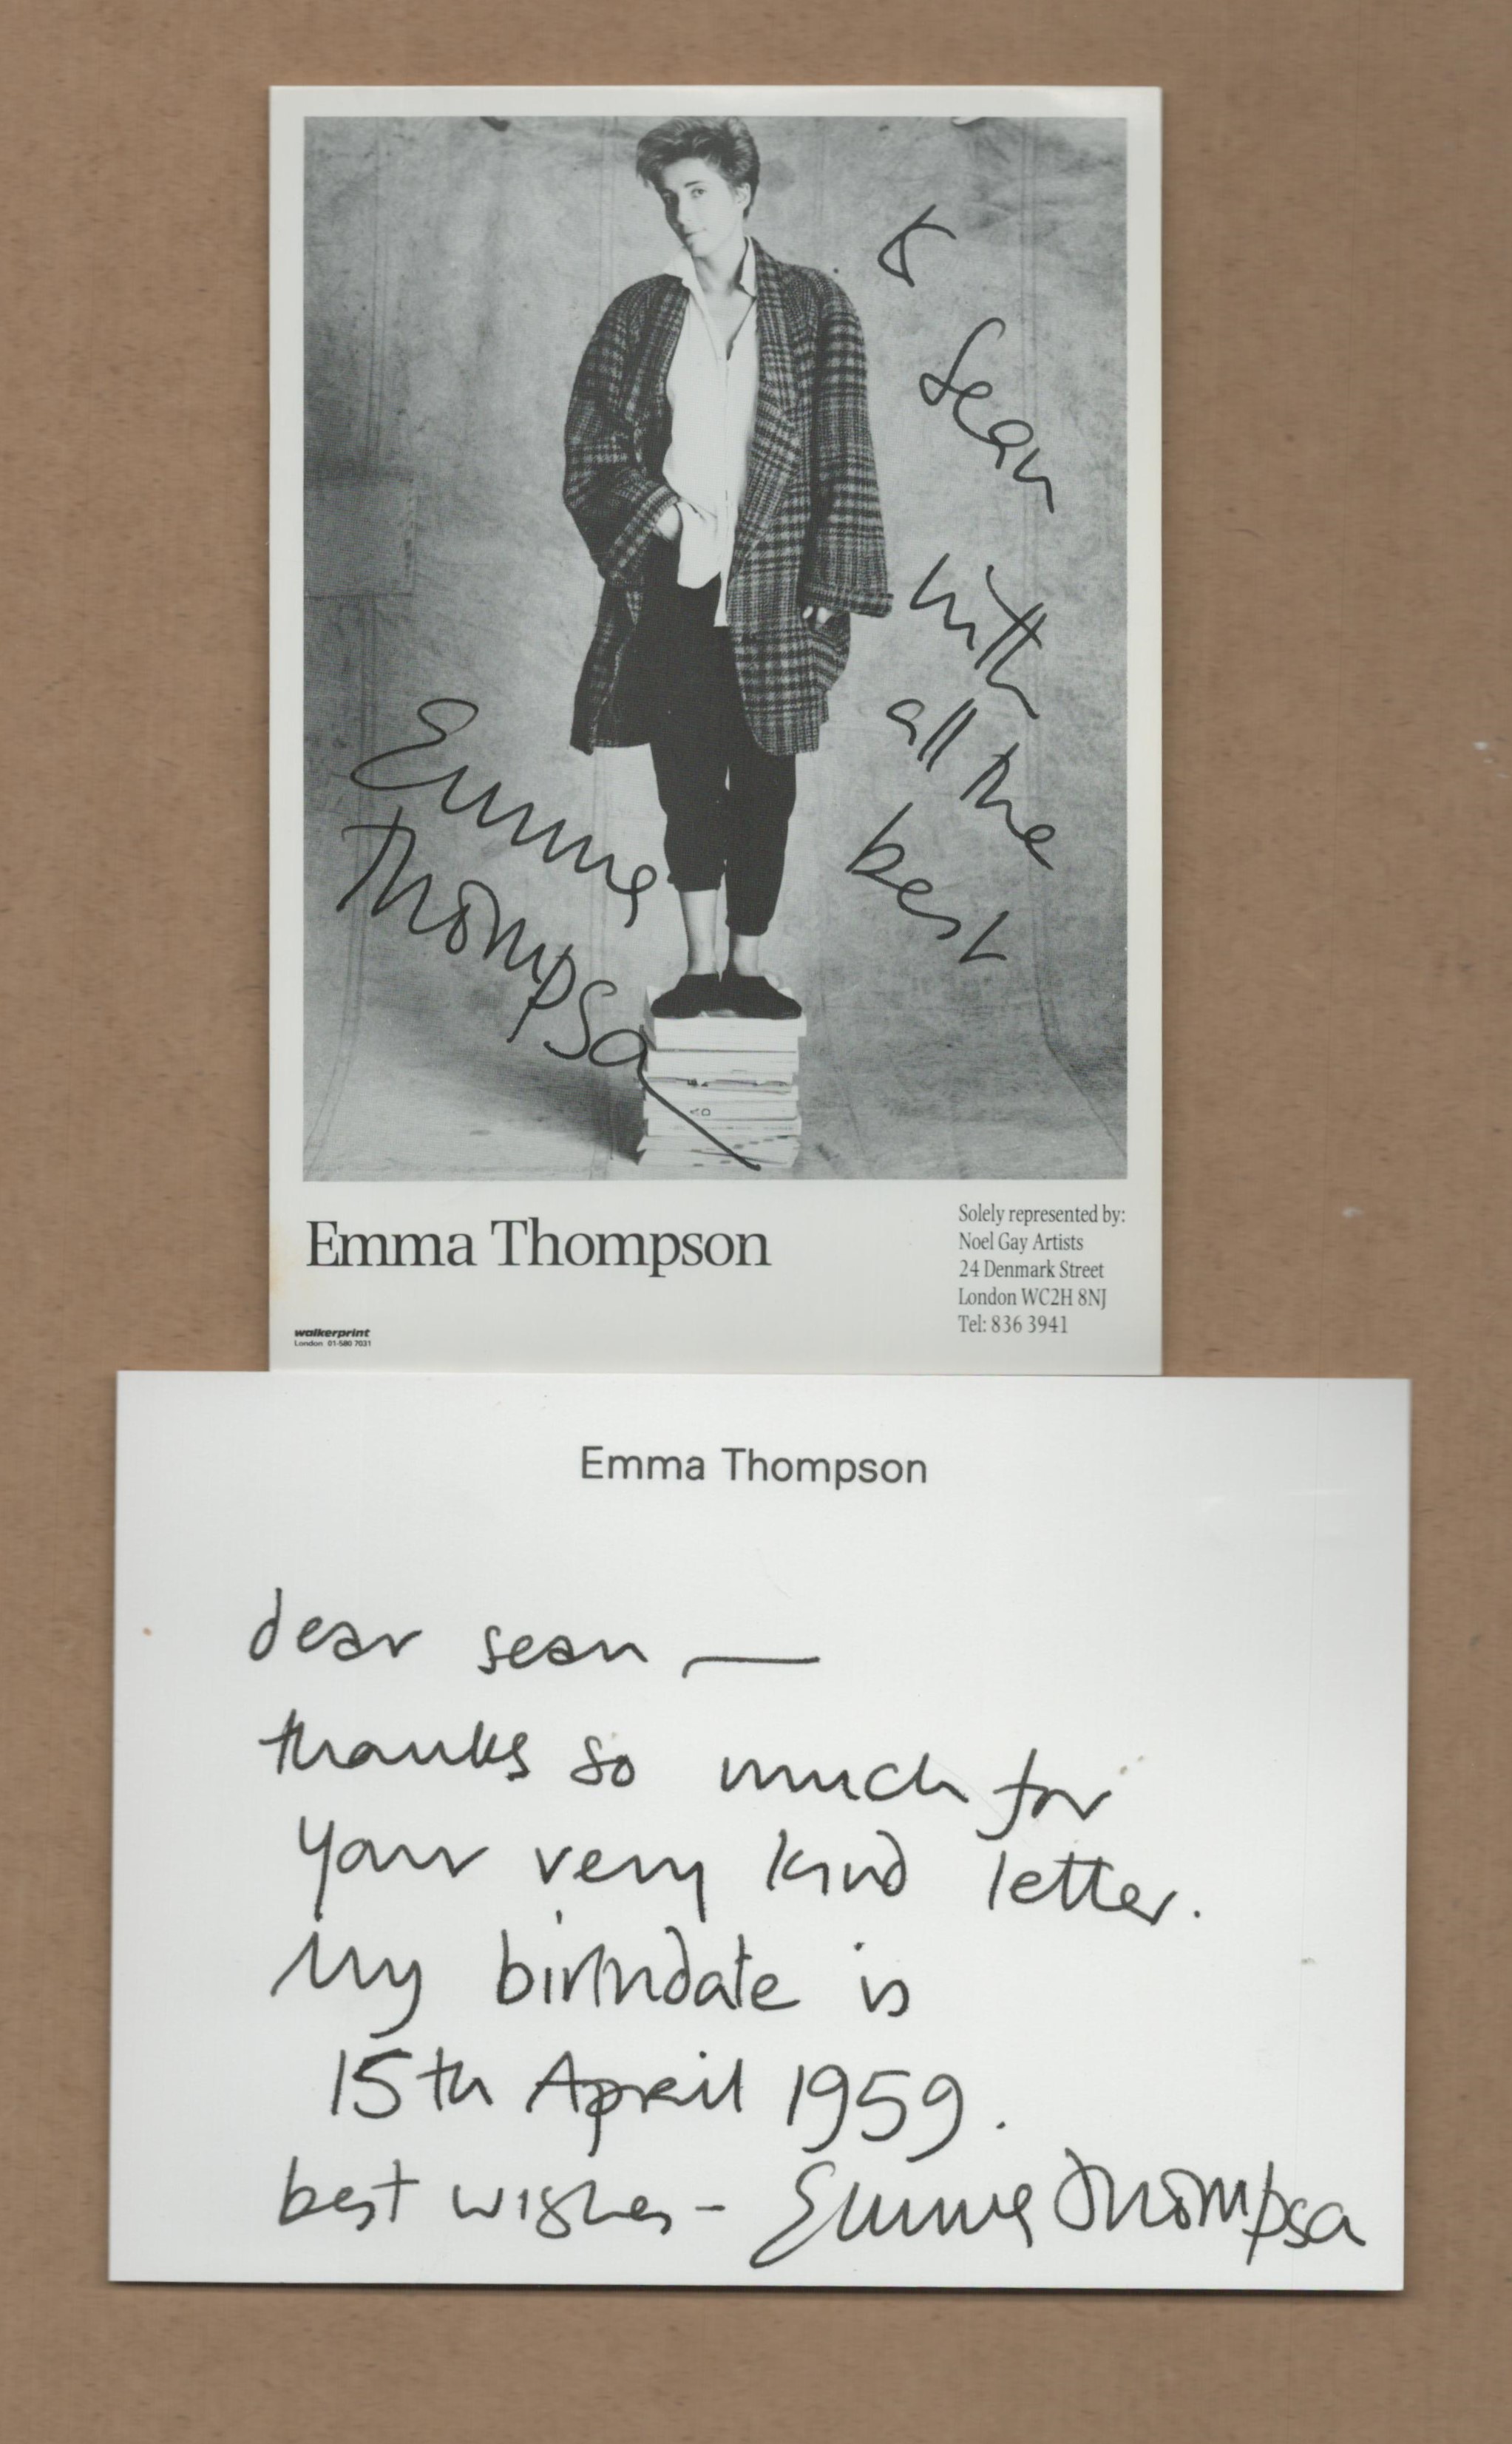 to
Sean
with
all the
best
Emma
Thompson
Emma Thompson
Solely represented by:
Noel Gay Artists
24 Denmark Street
London WC2H 8NJ
Tel: 836 3941
walkerprint
London 01-580 7031
Emma Thompson
dear sean —
thanks so much for
your very kind letter.
My birthdate is
15th April 1959.
best wishes - Emma Thompson